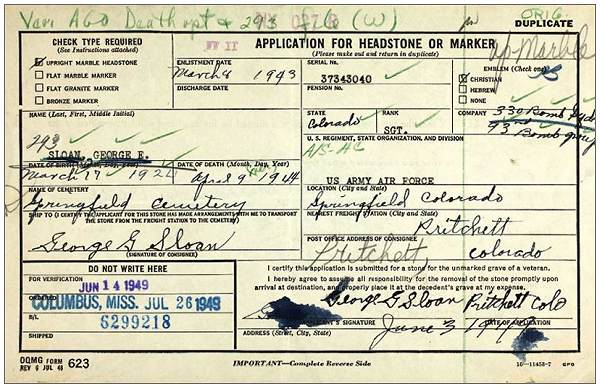 Veri AGO Death rpt & 293 file (W)
ORIG
DUPLICATE
CHECK TYPE REQUIRED
(See Instructions attached)
WW II
APPLICATION FOR HEADSTONE OR MARKER
(Please make out and return in duplicate)
up-Marble
UPRIGHT MARBLE HEADSTONE
FLAT MARBLE MARKER
FLAT GRANITE MARKER
BRONZE MARKER
ENLISTMENT DATE
March 8 1943
DISCHARGE DATE
SERIAL No.
37343040
PENSION No.
EMBLEM (Check one)
CHRISTIAN
HEBREW
NONE
STATE
Colorado
RANK
SGT.
COMPANY
330 Bomb Sqdn
93 Bomb group
NAME (Last, First, Middle Initial)
293
SLOAN, GEORGE E.
U. S. REGIMENT, STATE ORGANIZATION, AND DIVISION
A/S-AC
US ARMY AIR FORCE
DATE OF BIRTH (Month, Day, Year)
March 17 1924
DATE OF DEATH (Month, Day, Year)
April 9 1944
NAME OF CEMETERY
Springfield Cemetery
LOCATION (City and State)
Springfield Colorado
SHIP TO (I CERTIFY THE APPLICANT FOR THIS STONE HAS MADE ARRANGEMENTS WITH ME TO TRANSPORT
THE STONE FROM THE FREIGHT STATION TO THE CEMETERY)
NEAREST FREIGHT STATION (City and State)
Pritchett
George G Sloan
(SIGNATURE OF CONSIGNEE)
POST OFFICE ADDRESS OF CONSIGNEE
Pritchett, Colorado
DO NOT WRITE HERE
FOR VERIFICATION
JUN 14 1949
ORDERED
COLUMBUS, MISS. JUL 26 1949
B/L
6299218
SHIPPED
I certify this application is submitted for a stone for the unmarked grave of a veteran.
I hereby agree to assume all responsibility for the removal of the stone promptly upon
arrival at destination, and properly place it at the decedent's grave at my expense.
George G Sloan Pritchett Colo
APPLICANT'S SIGNATURE
DATE OF APPLICATION
June 3
ADDRESS (Street, City, State)
OQMG FORM 623
REV 6 JUL 48
IMPORTANT—Complete Reverse Side
16—11458-7 GPO